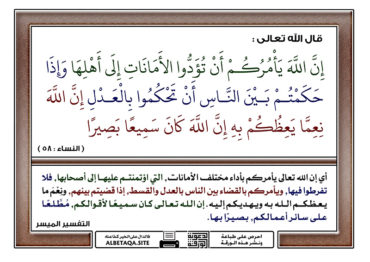 قال الله تعالى :
إِنَّ اللَّهَ يَأْمُرُكُمْ أَنْ تُؤَدُّوا الأَمَانَاتِ إِلَى أَهْلِهَا وَإِذَا
حَكَمْتُمْ بَيْنَ النَّاسِ أَنْ تَحْكُمُوا بِالْعَدْلِ إِنَّ اللَّهَ
نِعِمَّا يَعِظُكُمْ بِهِ إِنَّ اللَّهَ كَانَ سَمِيعًا بَصِيرًا
( النساء : ٥٨ )
أي إن الله تعالى يأمركم بأداء مختلف الأمانات، التي اؤتمنتم عليها إلى أصحابها، فلا
تفرطوا فيها، ويأمركم بالقضاء بين الناس بالعدل والقسط، إذا قضيتم بينهم، ونعم ما
يعظكم الله به ويهديكم إليه. إن الله تعالى كان سميعًا لأقوالكم، مُطَّلعًا
على سائر أعمالكم، بصيرًا بها.
التفسير الميسر
احرص على طباعة
ونشر هذه الورقة
فالدال على الخير كفاعله
ALBETAQA.SITE